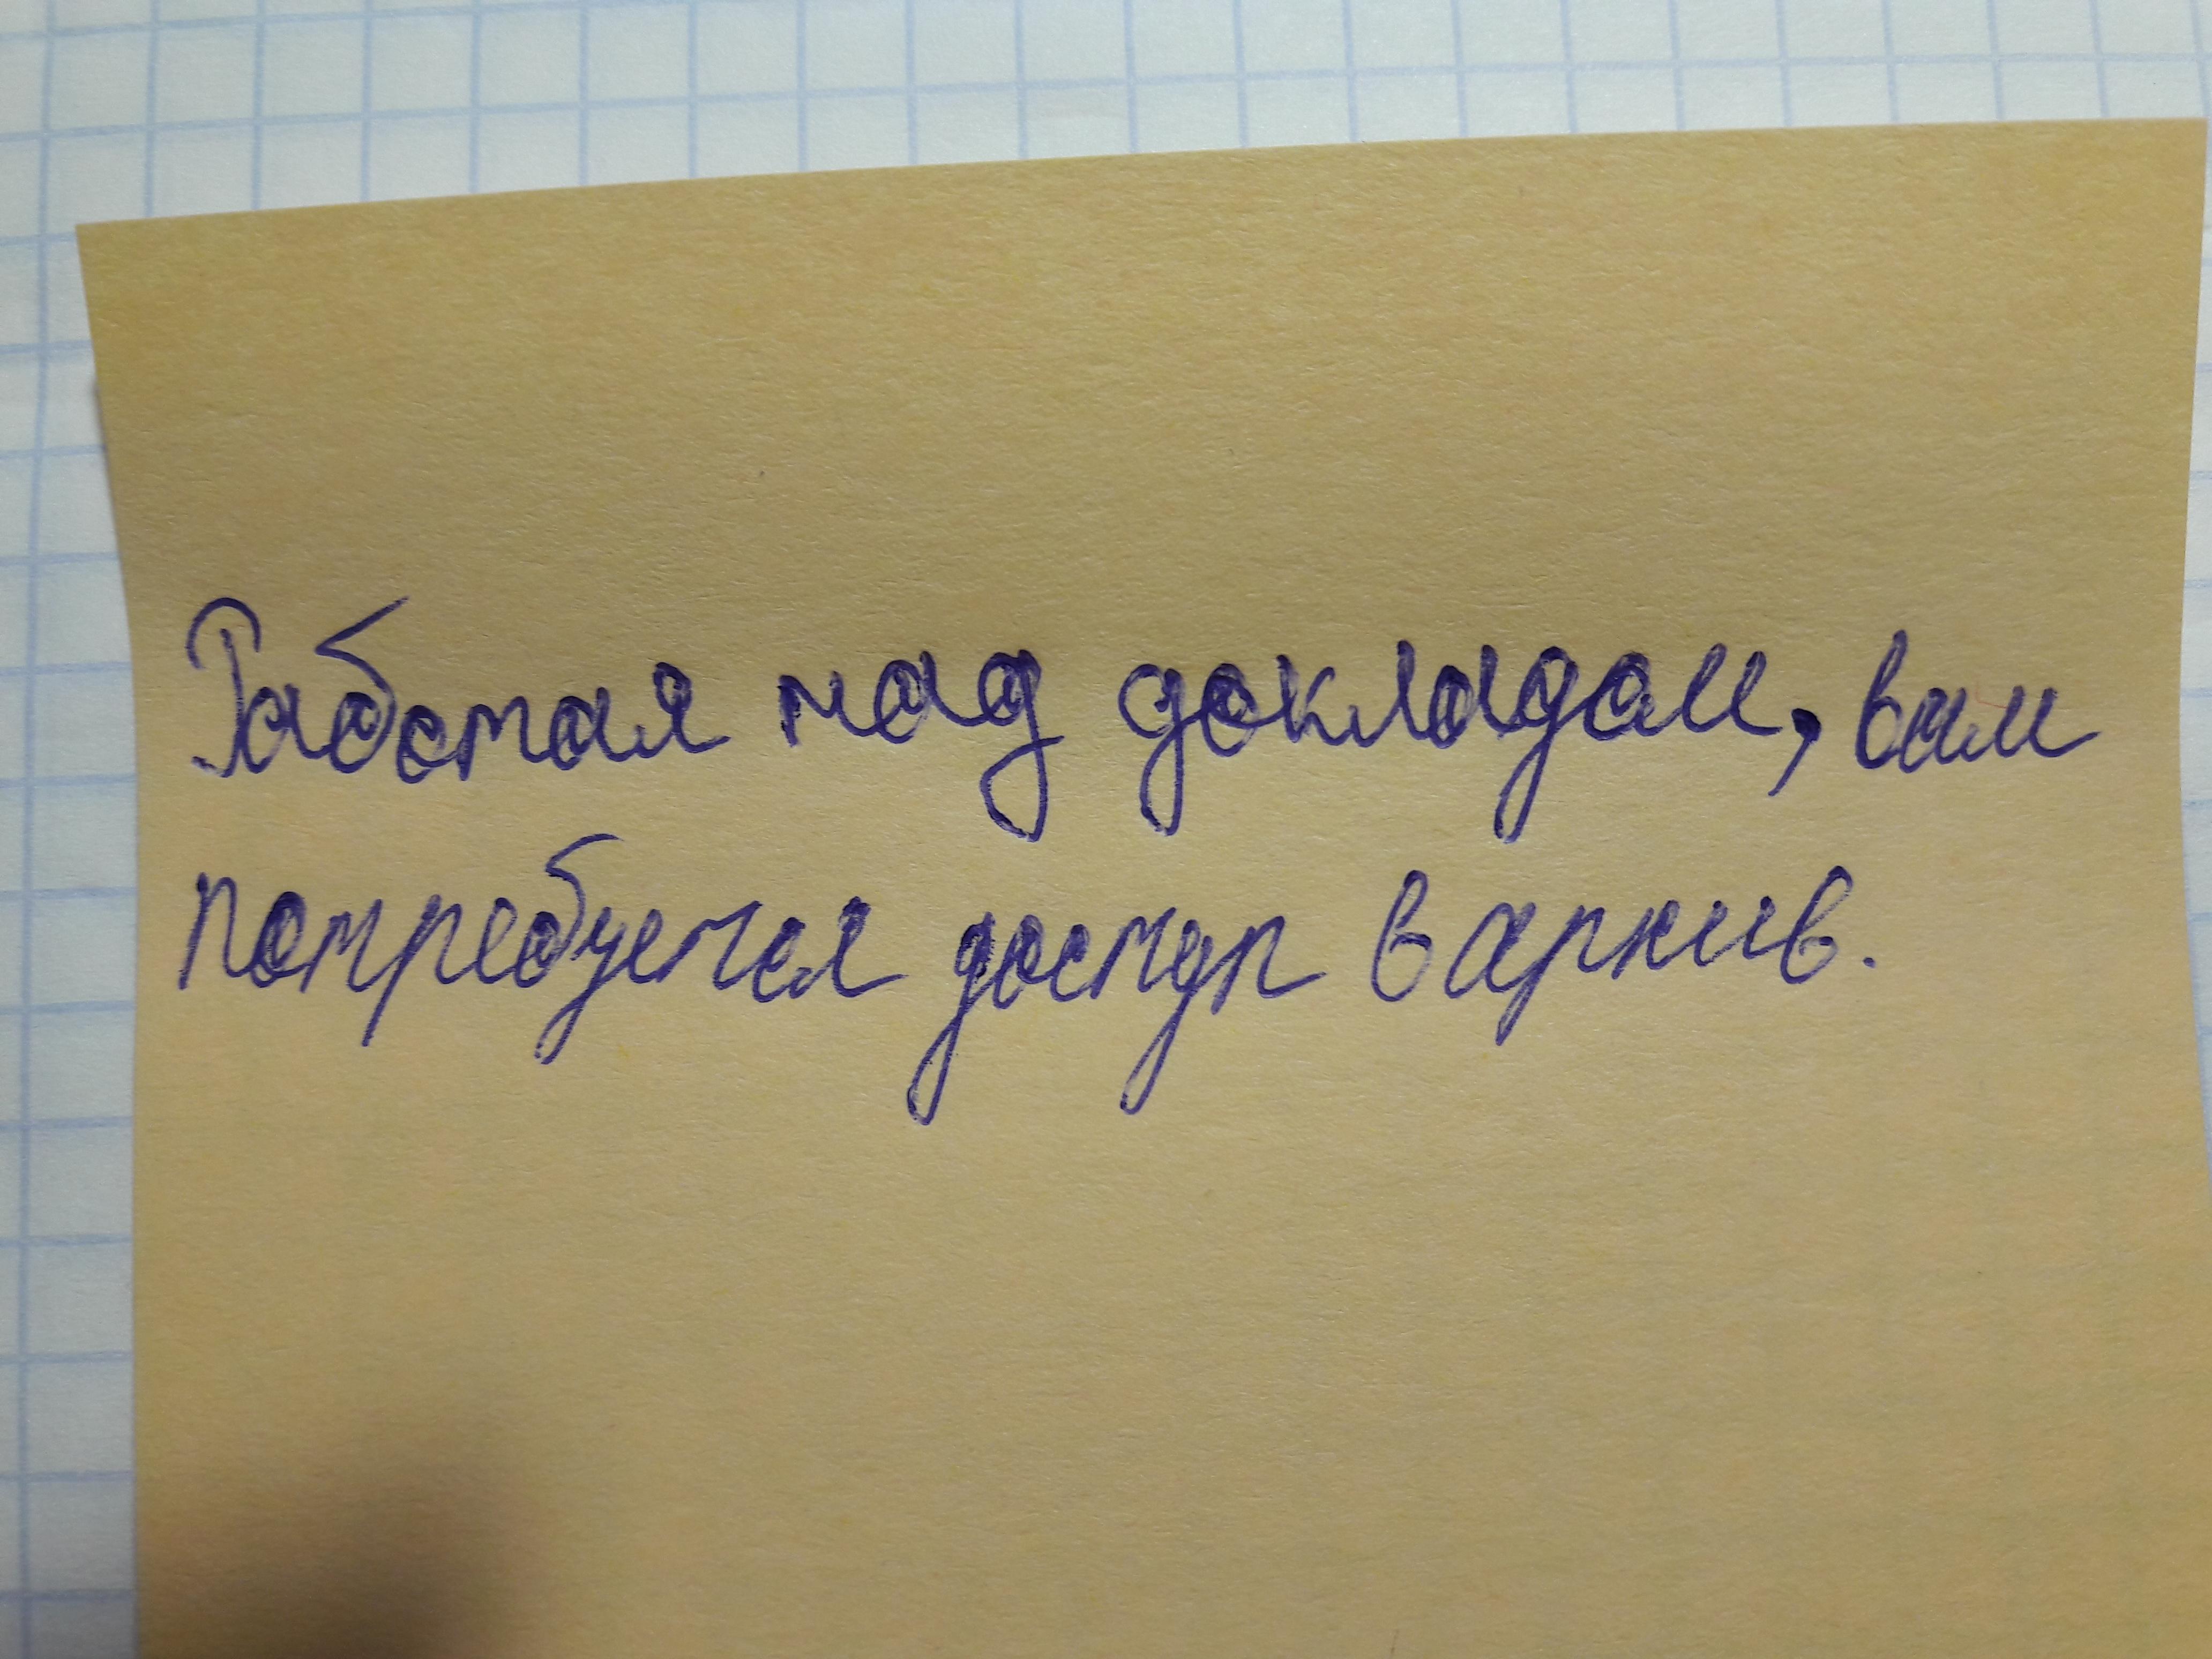 Работая над докладом, вам
потребуется доступ в архив.